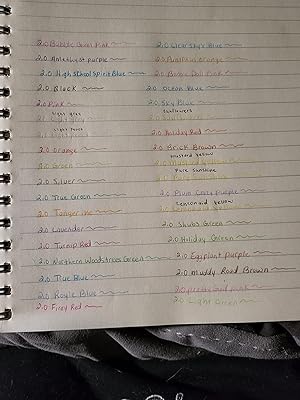 2.0 Bubble Gum Pink
2.0 Amethyst purple
2.0 High School Spirit Blue
2.0 Black
2.0 Pink
light gray
2.0 Light gray
light peach
2.0
2.0 Orange
2.0 Green
2.0 Silver
2.0 True Green
2.0 Tangerine
2.0 Lavender
2.0 Turnip Red
2.0 Northern Woods trees Green
2.0 True Blue
2.0 Royle Blue
2.0 Firey Red
2.0 Clear Skys Blue
2.0 Pumpkins Orange
2.0 Barbie Doll Pink
2.0 Ocean Blue
2.0 Sky Blue
sunflowers
2.0
2.0 Holiday Red
2.0 Brick Brown
mustard yellow
2.0 Mustard yellow
Pure Sunshine
2.0
2.0 Plum Crazy Purple
Lemonaid yellow
2.0 Lemonaid yellow
2.0 Shubs Green
2.0 Holiday Green
2.0 Eggplant Purple
2.0 Muddy Road Brown
2.0 pink
2.0 Light Green